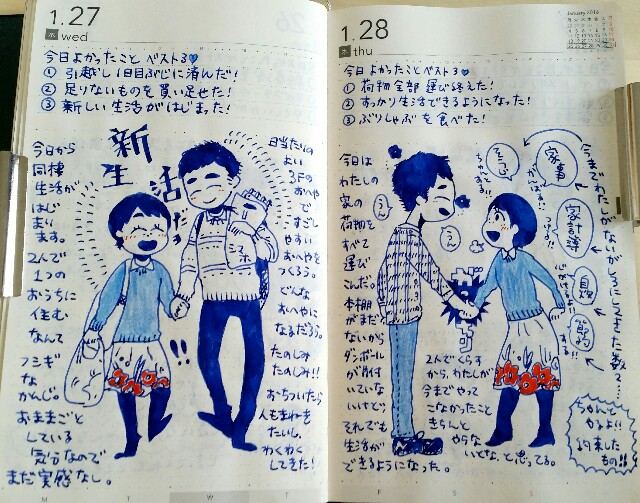 1.27
水 wed
今日よかったこと ベスト3
① 引越し1日目ぶじに済んだ!
② 足りないものを買い足せた!
③ 新しい生活がはじまった!
新生活だぁ
今日から
同棲
生活が
はじ
まり
ます。
2人で
1つの
おうちに
住む
なんて
フシギ
な
かんじ。
おままごと
している
気分なので
まだ実感なし。
!!
日当たりの
よい
3Fの
おへや
で
すごし
やすい
おへやを
つくろう。
どんな
おへやに
なるだろう。
たのしみ
たのしみ!!
おちついたら
人もまねき
たいし、
わくわく
してきた!
1.28
木 thu
January 2016
今日よかったこと ベスト3
① 荷物全部運び終えた!
② すっかり生活できるようになった!
③ ぶりしゃぶを食べた!
今日は
わたしの
家の
荷物を
すべて
運び
こんだ。
本棚
がまだ
ないから
ダンボール
が片付
いていな
いけど、
それでも
生活が
できるようになった。
うん
うん
そうじ
家事
がんばる!!
家計簿
自炊
節約
する!!
今までわたしがないがしろにしてきた数々…
2人でくらす
から、わたしが
今までやって
こなかったこと
きちんと
やらな
いとな、と思ってる。
ちゃんと
やるよ!!
約束した
もの!!
M
T
W
T
F
S
S